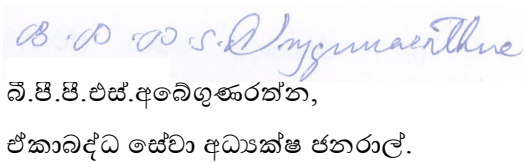 බී.පී.පී.එස්.අබේගුණරත්න,
ඒකාබද්ධ සේවා අධ්‍යක්ෂ ජනරාල්.